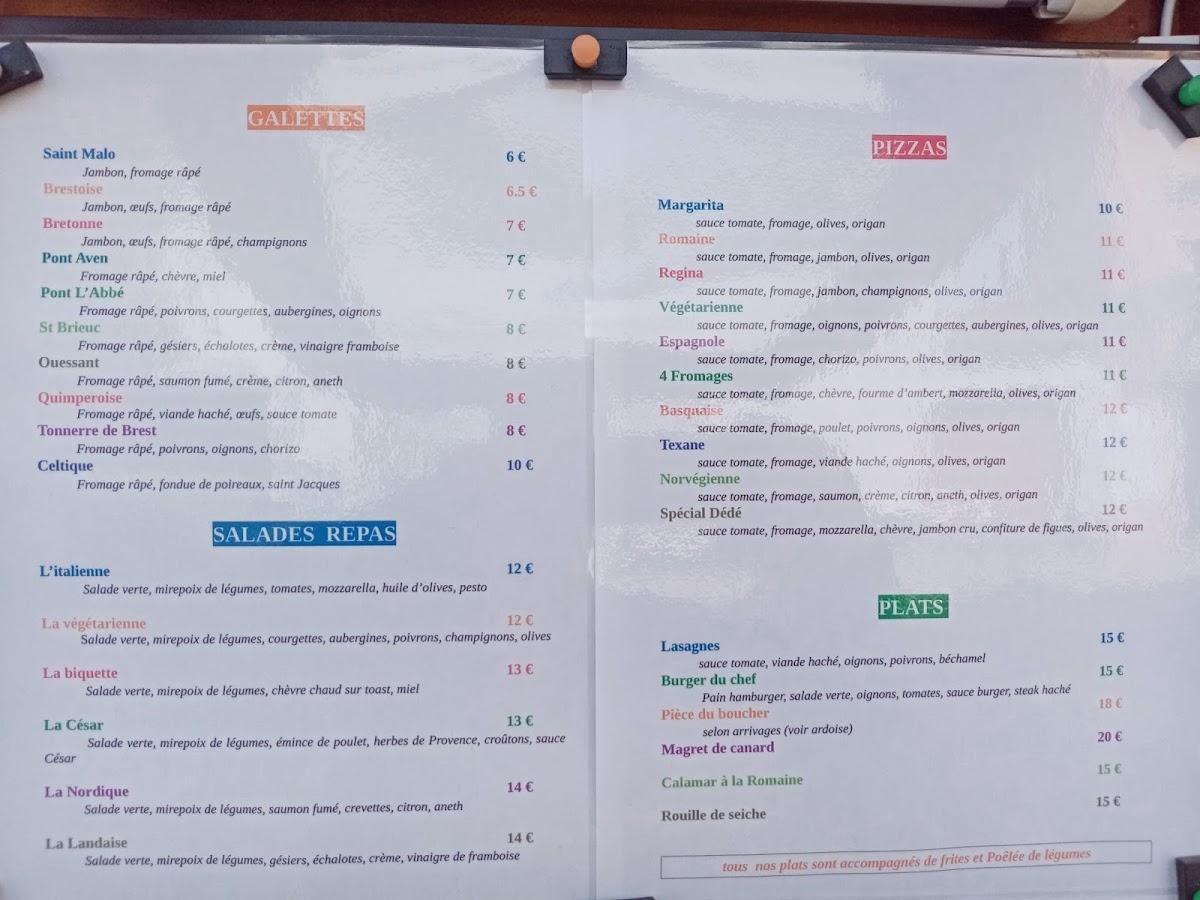 GALETTES
Saint Malo 6 €
Jambon, fromage râpé
Brestoise 6.5 €
Jambon, œufs, fromage râpé
Bretonne 7 €
Jambon, œufs, fromage râpé, champignons
Pont Aven 7 €
Fromage râpé, chèvre, miel
Pont L'Abbé 7 €
Fromage râpé, poivrons, courgettes, aubergines, oignons
St Brieuc 8 €
Fromage râpé, gésiers, échalotes, crème, vinaigre framboise
Ouessant 8 €
Fromage râpé, saumon fumé, crème, citron, aneth
Quimperoise 8 €
Fromage râpé, viande haché, œufs, sauce tomate
Tonnerre de Brest 8 €
Fromage râpé, poivrons, oignons, chorizo
Celtique 10 €
Fromage râpé, fondue de poireaux, saint Jacques
SALADES REPAS
L'italienne 12 €
Salade verte, mirepoix de légumes, tomates, mozzarella, huile d'olives, pesto
La végétarienne 12 €
Salade verte, mirepoix de légumes, courgettes, aubergines, poivrons, champignons, olives
La biquette 13 €
Salade verte, mirepoix de légumes, chèvre chaud sur toast, miel
La César 13 €
Salade verte, mirepoix de légumes, émince de poulet, herbes de Provence, croûtons, sauce
César
La Nordique 14 €
Salade verte, mirepoix de légumes, saumon fumé, crevettes, citron, aneth
La Landaise 14 €
Salade verte, mirepoix de légumes, gésiers, échalotes, crème, vinaigre de framboise
PIZZAS
Margarita 10 €
sauce tomate, fromage, olives, origan
Romaine 11 €
sauce tomate, fromage, jambon, olives, origan
Regina 11 €
sauce tomate, fromage, jambon, champignons, olives, origan
Végétarienne 11 €
sauce tomate, fromage, oignons, poivrons, courgettes, aubergines, olives, origan
Espagnole 11 €
sauce tomate, fromage, chorizo, poivrons, olives, origan
4 Fromages 11 €
sauce tomate, fromage, chèvre, fourme d'ambert, mozzarella, olives, origan
Basquaise 12 €
sauce tomate, fromage, poulet, poivrons, oignons, olives, origan
Texane 12 €
sauce tomate, fromage, viande haché, oignons, olives, origan
Norvégienne 12 €
sauce tomate, fromage, saumon, crème, citron, aneth, olives, origan
Spécial Dédé 12 €
sauce tomate, fromage, mozzarella, chèvre, jambon cru, confiture de figues, olives, origan
PLATS
Lasagnes 15 €
sauce tomate, viande haché, oignons, poivrons, béchamel
Burger du chef 15 €
Pain hamburger, salade verte, oignons, tomates, sauce burger, steak haché
Pièce du boucher 18 €
selon arrivages (voir ardoise)
Magret de canard 20 €
Calamar à la Romaine 15 €
Rouille de seiche 15 €
tous nos plats sont accompagnés de frites et Poêlée de légumes